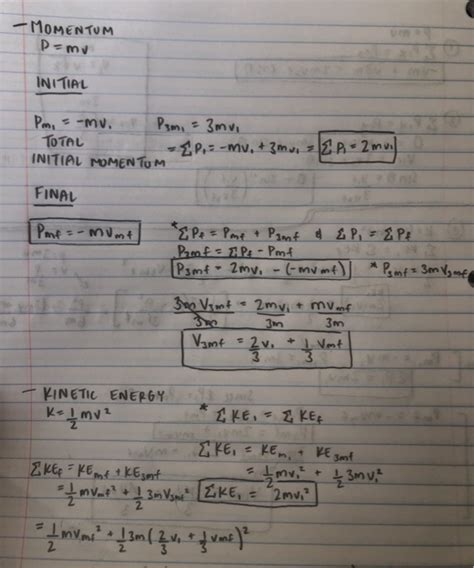 - MOMENTUM
P = mv
INITIAL
Pm₁ = -mv₁ P3m₁ = 3mv₁
TOTAL
INITIAL MOMENTUM = ΣP₁ = -mv₁ + 3mv₁ = ΣP₁ = 2mv₁
FINAL
Pmf = -mVmf * ΣPf = Pmf + P3mf & ΣP₁ = ΣPf
P3mf = ΣPf - Pmf
P3mf = 2mv₁ - (-mvmf) * P3mf = 3mV3mf
3mV3mf/3m = 2mv₁/3m + mvmf/3m
V3mf = 2/3 v₁ + 1/3 vmf
- KINETIC ENERGY
K = 1/2 mv² * ΣKE₁ = ΣKEf
ΣKE₁ = KEm₁ + KE3mf
ΣKEf = KEmf + KE3mf = 1/2 mv₁² + 1/2 3mv₁²
= 1/2 mvmf² + 1/2 3mV3mf² ΣKE₁ = 2mv₁²
= 1/2 mvmf² + 1/2 3m(2/3 v₁ + 1/3 vmf)²